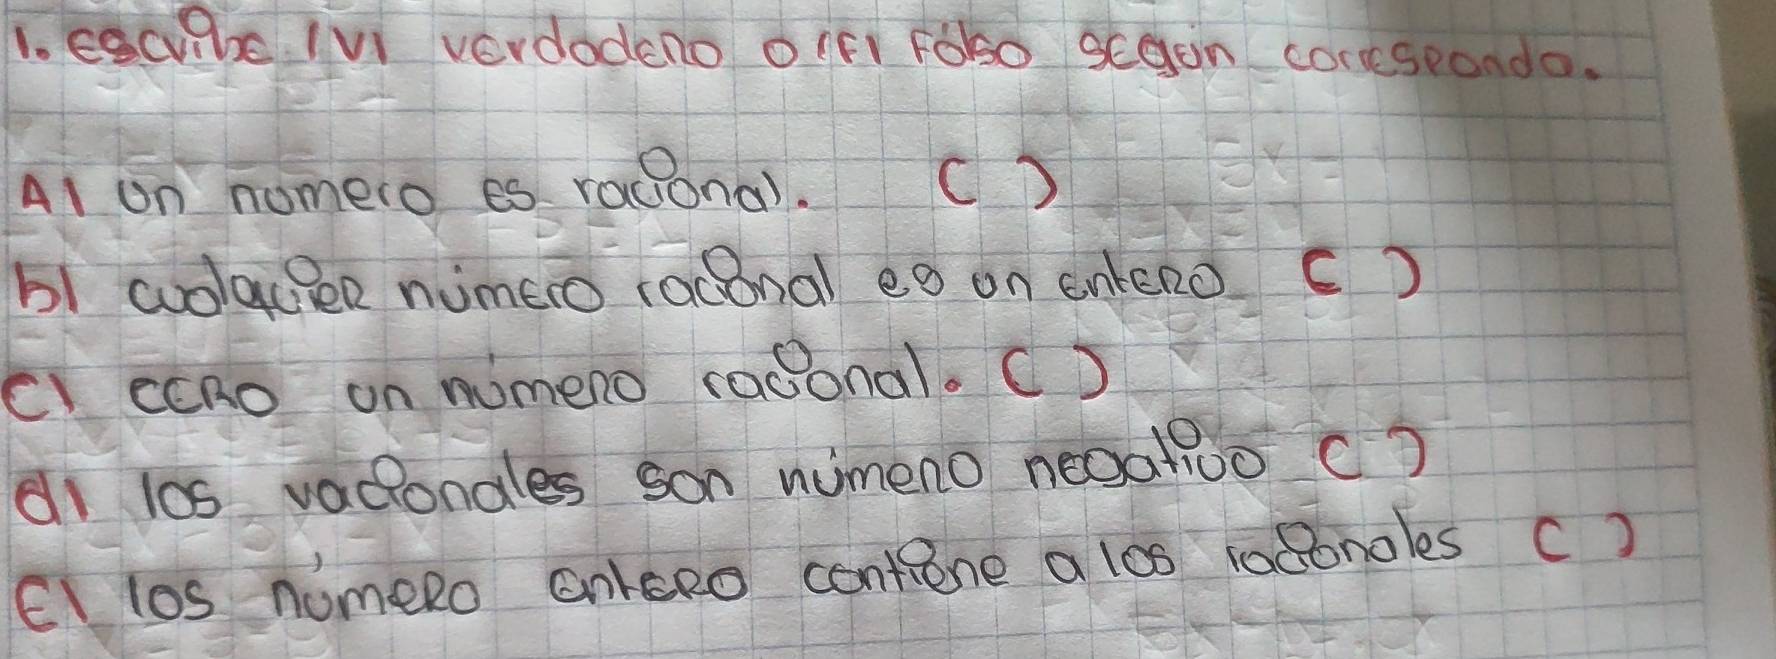 1. escribe (V) verdadero o (F) Falso según corresponda.
A) un numero es racional. ( )
b) cualquier número racional es un entero ( )
c) cero un número racional. ( )
d) los racionales son número negativo ( )
E) los número entero contiene a los racionales ( )